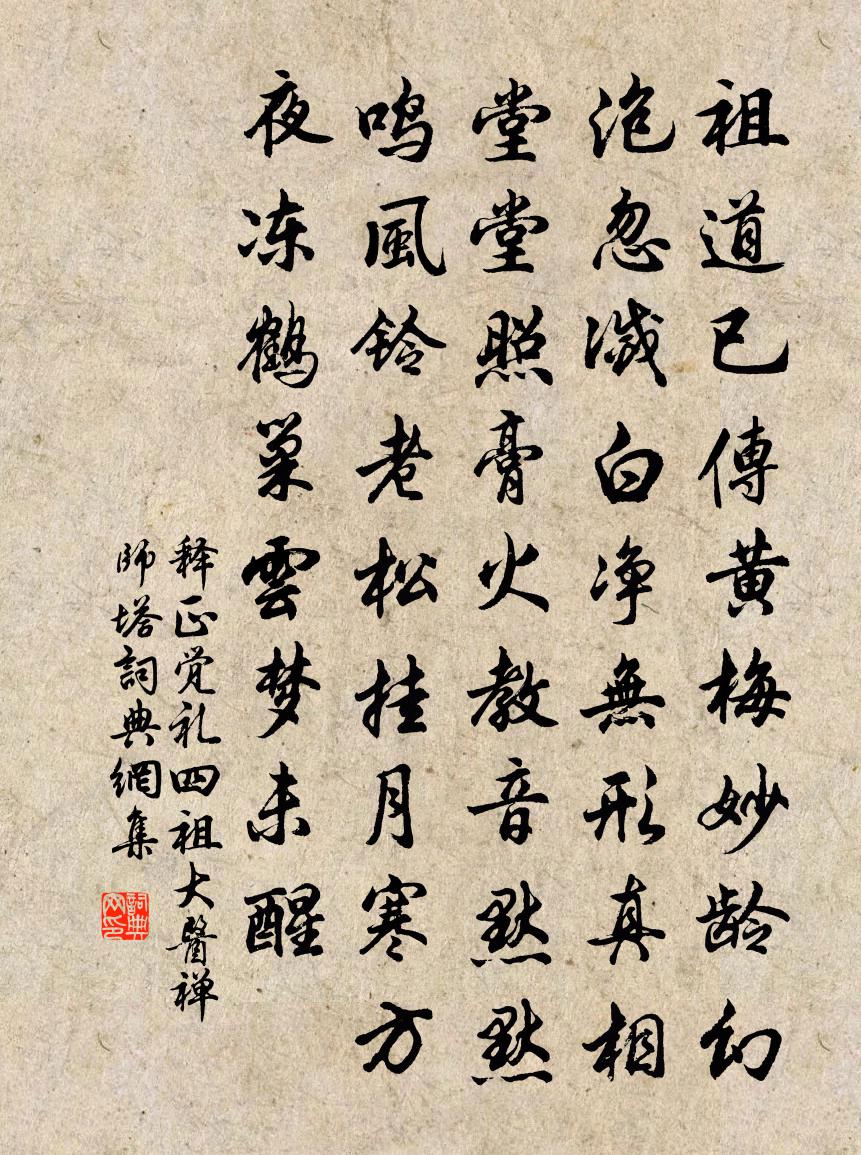 祖道已傳黄梅妙龄幻
泡忽滅白净無形真相
堂堂照膏火教音默默
鸣風铃老松挂月寒方
夜冻鶴巢雲梦未醒
释正觉礼四祖大醫禅
師塔詞典網集
詞典
网印